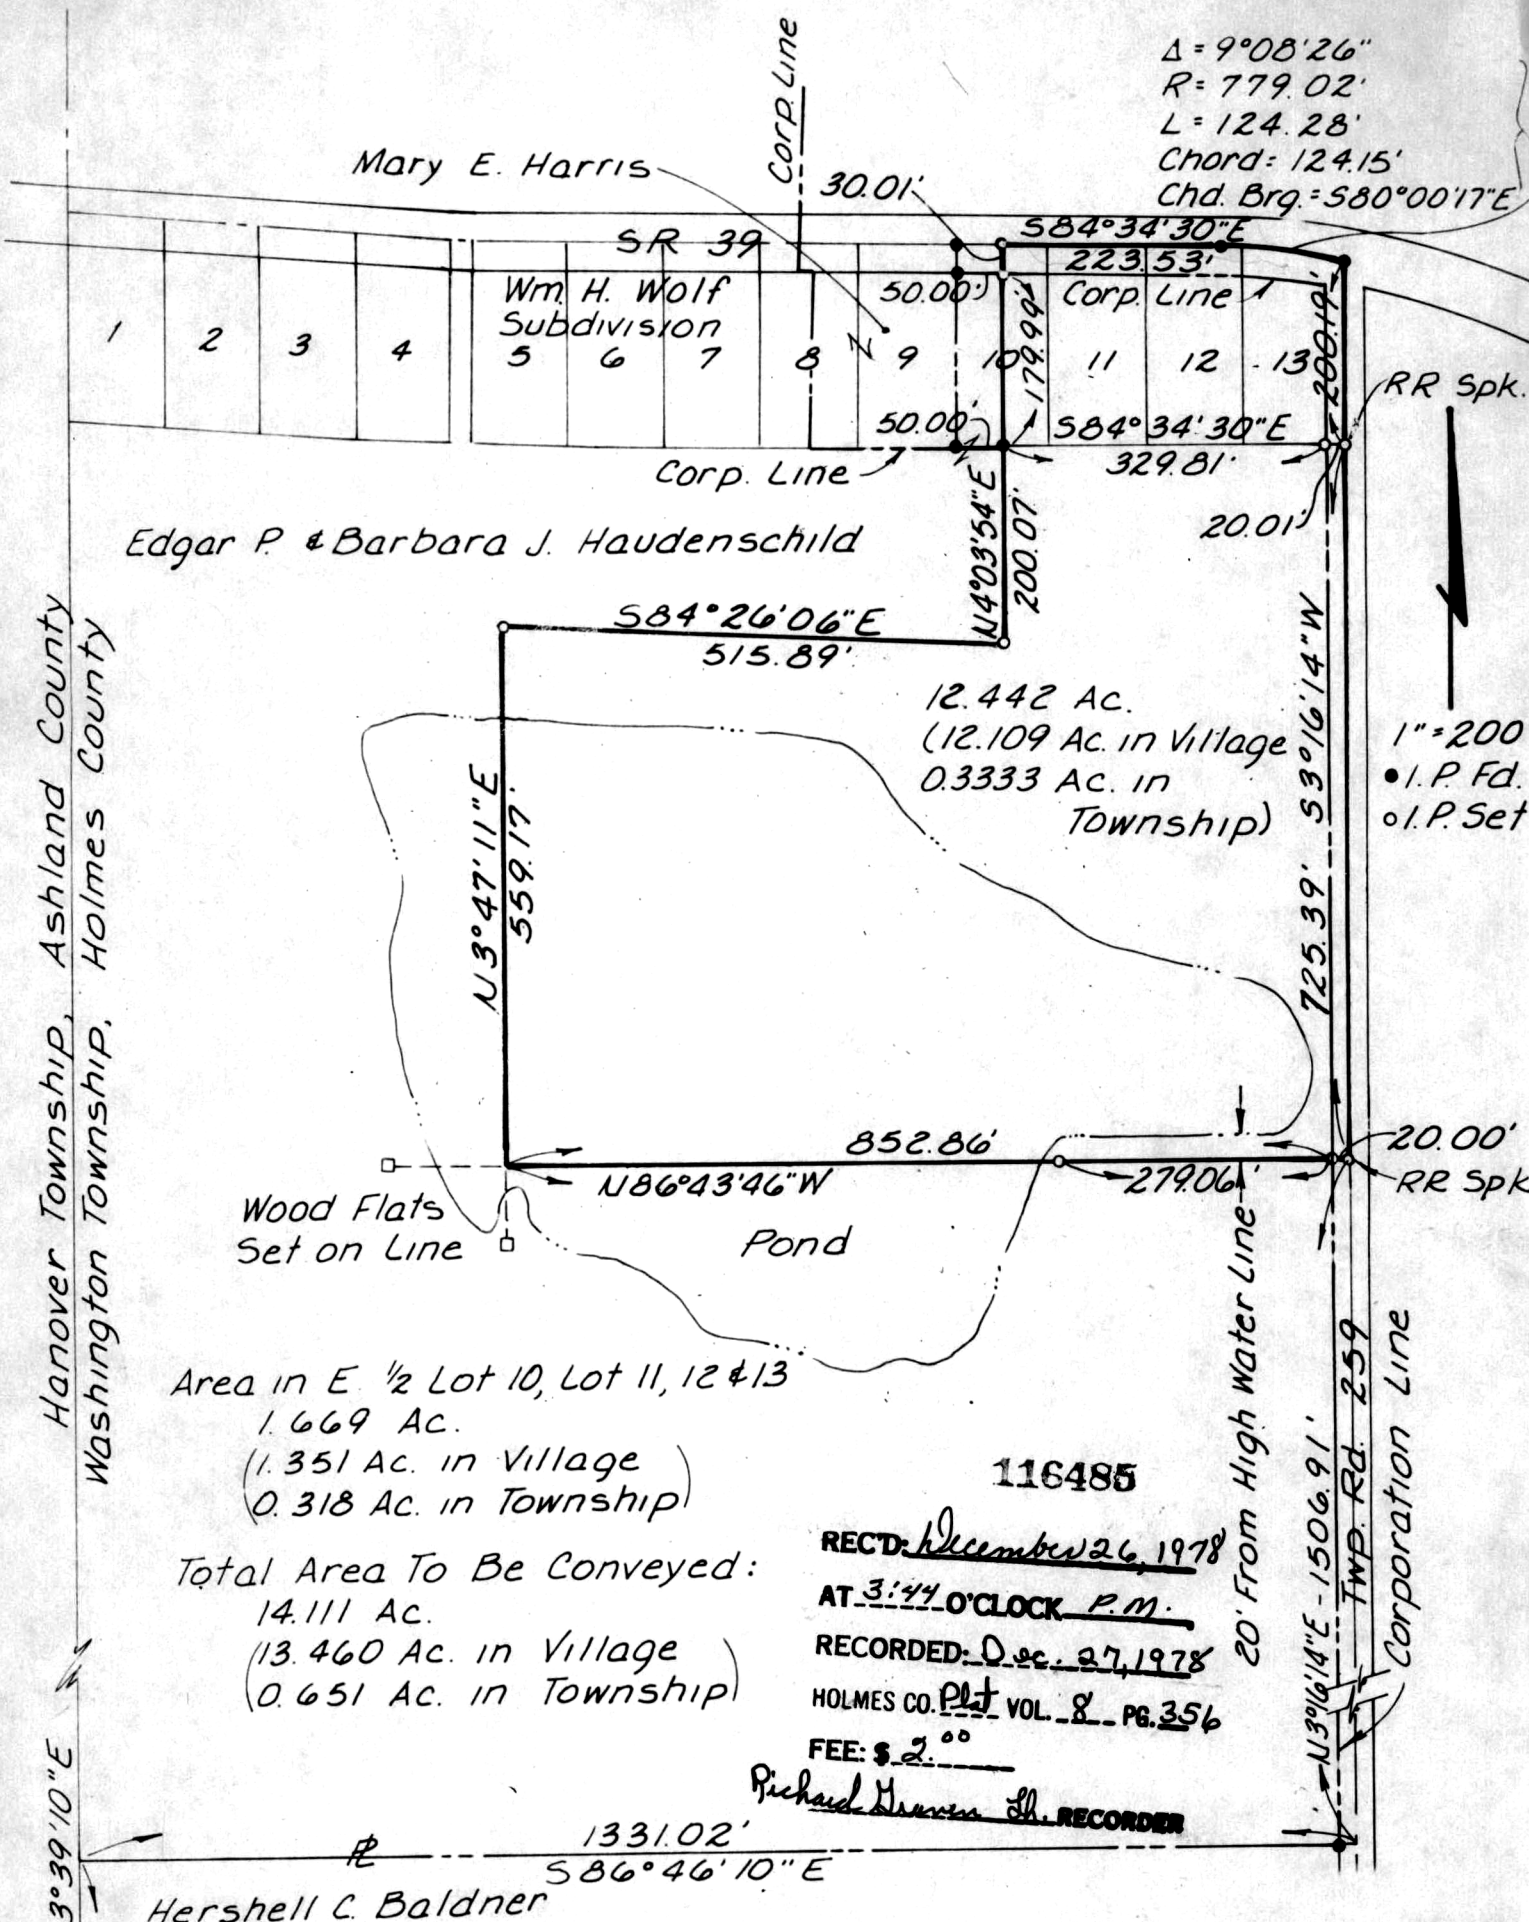 Δ = 9°08'26"
R = 779.02'
L = 124.28'
Chord = 124.15'
Chd. Brg. = S80°00'17"E
Corp. Line
Mary E. Harris
30.01'
SR 39
S84°34'30"E
223.53'
Corp. Line
Wm. H. Wolf
Subdivision
50.00'
179.99'
200.19'
1 2 3 4 5 6 7 8 9 10 11 12 13
RR Spk.
50.00'
S84°34'30"E
329.81'
Corp. Line
20.01'
Edgar P. & Barbara J. Haudenschild
N4°03'54"E
200.07'
S84°26'06"E
515.89'
12.442 Ac.
(12.109 Ac. in Village
0.3333 Ac. in
Township)
725.39' S3°16'14"W
1"=200
I.P. Fd.
I.P. Set
N3°47'11"E
559.17'
Hanover Township, Ashland County
Washington Township, Holmes County
852.86'
N86°43'46"W
279.06'
20.00'
RR Spk
Wood Flats
Set on Line
Pond
20' From High Water Line
N3°16'14"E - 1506.91'
Twp. Rd. 259
Corporation Line
Area in E. ½ Lot 10, Lot 11, 12 & 13
1.669 Ac.
(1.351 Ac. in Village
0.318 Ac. in Township)
Total Area To Be Conveyed:
14.111 Ac.
(13.460 Ac. in Village
0.651 Ac. in Township)
116485
REC'D: December 26, 1978
AT 3:44 O'CLOCK P.M.
RECORDED: Dec. 27, 1978
HOLMES CO. Plat VOL. 8 PG. 356
FEE: $ 2.00
Richard Graven RECORDER
3°39'10"E
1331.02'
S86°46'10"E
Hershell C. Baldner